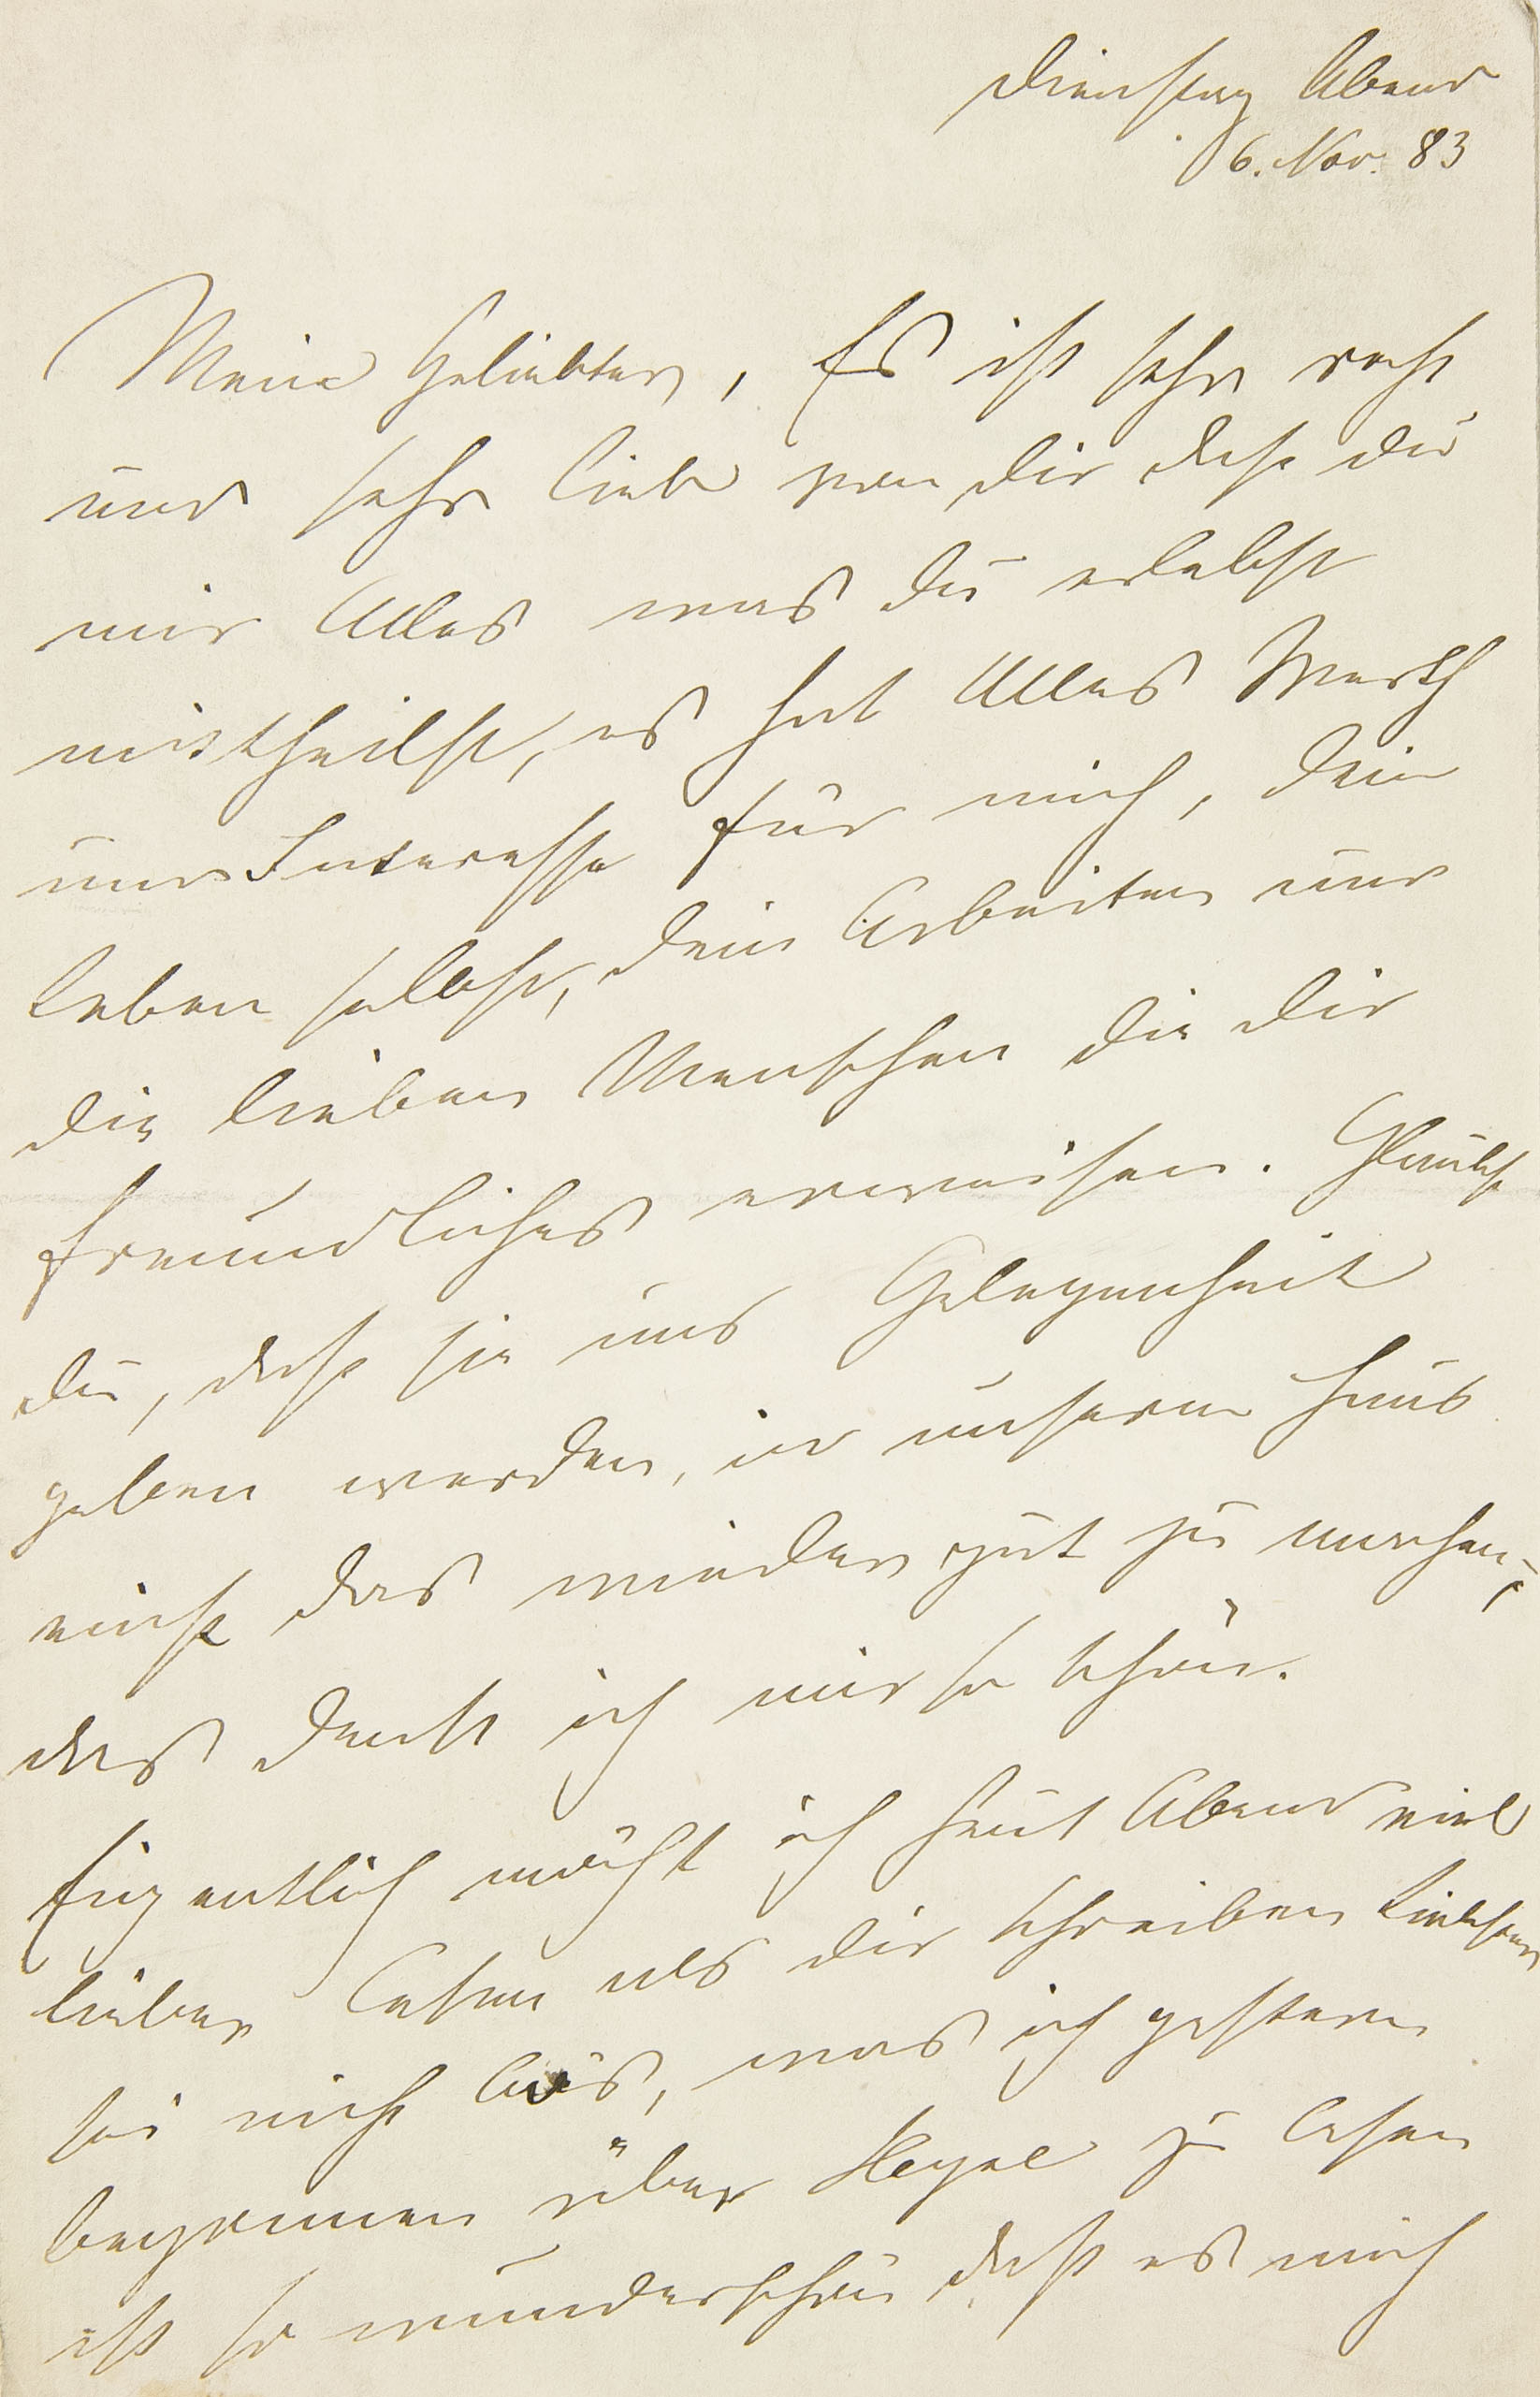 Dienstag Abend
6. Nov. 83
Mein Geliebter, Es ist sehr recht
und sehr lieb von dir dass du
mir Alles was du erlebst
mittheilst, es hat Alles Werth
und Interesse für mich, dein
Leben selbst, dein Arbeiten und
die lieben Menschen die dir
freundliches erweisen. Glaubst
du, dass sie uns Gelegenheit
geben werden, in unserm Haus
einst das wieder gut zu machen,
das denk ich mir so schön.
Eigentlich möcht ich heut Abend viel
lieber lesen als dir schreiben Liebster
sei nicht bös, was ich gestern
begonnen über Hegel zu lesen
ist so wunderschön dass es mich